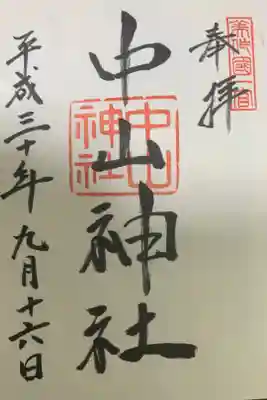 奉拝
美作國一宮
中山神社
中山神社
平成三十年九月十六日